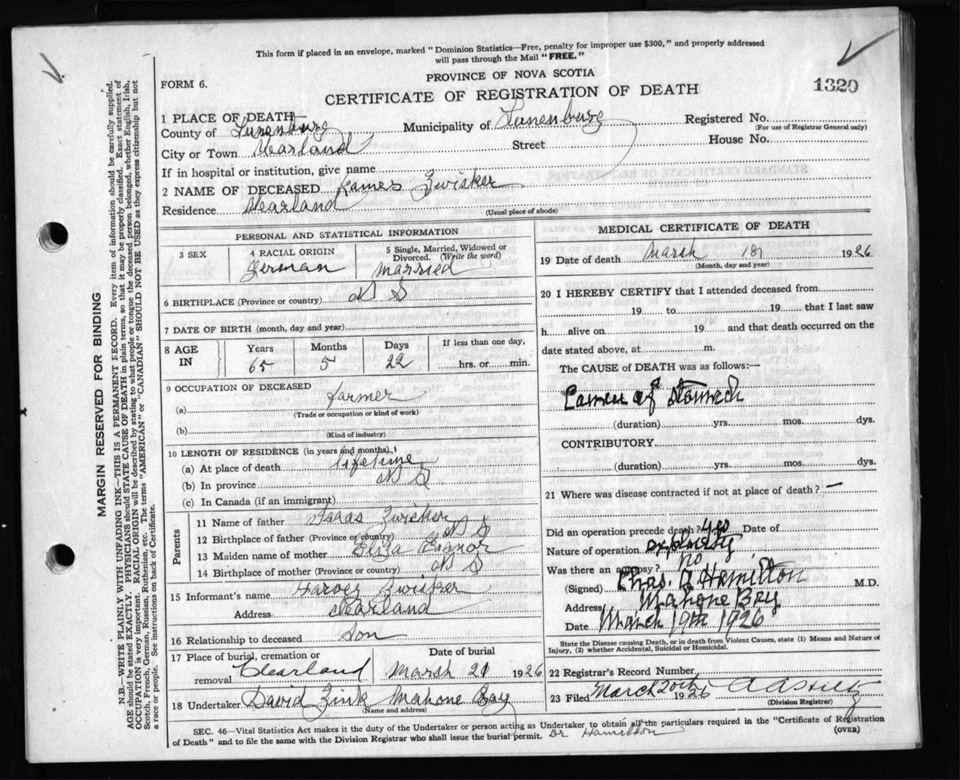 This form if placed in an envelope, marked "Dominion Statistics—Free, penalty for improper use $300," and properly addressed
will pass through the Mail "FREE."
FORM 6.
PROVINCE OF NOVA SCOTIA
1320
CERTIFICATE OF REGISTRATION OF DEATH
1 PLACE OF DEATH—
County of Lunenburg Municipality of Lunenburg Registered No.
(For use of Registrar General only)
City or Town Street House No.
If in hospital or institution, give name
2 NAME OF DECEASED James Zwicker
Residence
(Usual place of abode)
PERSONAL AND STATISTICAL INFORMATION
3 SEX 4 RACIAL ORIGIN 5 Single, Married, Widowed or Divorced. (Write the word)
German Married
6 BIRTHPLACE (Province or country) N S
7 DATE OF BIRTH (month, day and year)
8 AGE IN Years Months Days If less than one day,
65 5 22 hrs. or min.
9 OCCUPATION OF DECEASED
(a) Farmer
(Trade or occupation or kind of work)
(b)
(Kind of industry)
10 LENGTH OF RESIDENCE (in years and months)
(a) At place of death lifetime
(b) In province N S
(c) In Canada (if an immigrant)
Parents
11 Name of father Isaas Zwicker
12 Birthplace of father (Province or country) N S
13 Maiden name of mother Eliza
14 Birthplace of mother (Province or country) N S
15 Informant's name Harvey Zwicker
Address
16 Relationship to deceased Son
17 Place of burial, cremation or removal Clearland
Date of burial March 21 1926
18 Undertaker David Zink Mahone Bay
(Name and address)
MEDICAL CERTIFICATE OF DEATH
19 Date of death March 18 1926
(Month, day and year)
20 I HEREBY CERTIFY that I attended deceased from
19 to 19 that I last saw
h alive on 19 and that death occurred on the
date stated above, at m.
The CAUSE OF DEATH was as follows:—
of Stomach
(duration) yrs. mos. dys.
CONTRIBUTORY
(duration) yrs. mos. dys.
21 Where was disease contracted if not at place of death? —
Did an operation precede death? yes Date of
Nature of operation
Was there an autopsy? no
(Signed) Chas. Hamilton M.D.
Address Mahone Bay
Date March 19th 1926
State the Disease causing Death, or in death from Violent Causes, state (1) Means and Nature of
Injury, (2) whether Accidental, Suicidal or Homicidal.
22 Registrar's Record Number
23 Filed March 20th 1926
(Division Registrar)
SEC. 46—Vital Statistics Act makes it the duty of the Undertaker or person acting as Undertaker, to obtain all the particulars required in the "Certificate of Registration
of Death" and to file the same with the Division Registrar who shall issue the burial permit. Dr Hamilton (OVER)
MARGIN RESERVED FOR BINDING
N.B.—WRITE PLAINLY WITH UNFADING INK—THIS IS A PERMANENT RECORD. Every item of information should be carefully supplied.
AGE should be stated EXACTLY. PHYSICIANS should STATE CAUSE OF DEATH in plain terms, so that it may be properly classified. Exact statement of
OCCUPATION is very important. RACIAL ORIGIN will be described by stating to what people or tongue the deceased person belonged, whether English, Irish,
Scotch, French, German, Russian, Ruthenian, etc. The terms "AMERICAN" or "CANADIAN" SHOULD NOT BE USED as they express citizenship but not
a race or people. See instructions on back of Certificate.